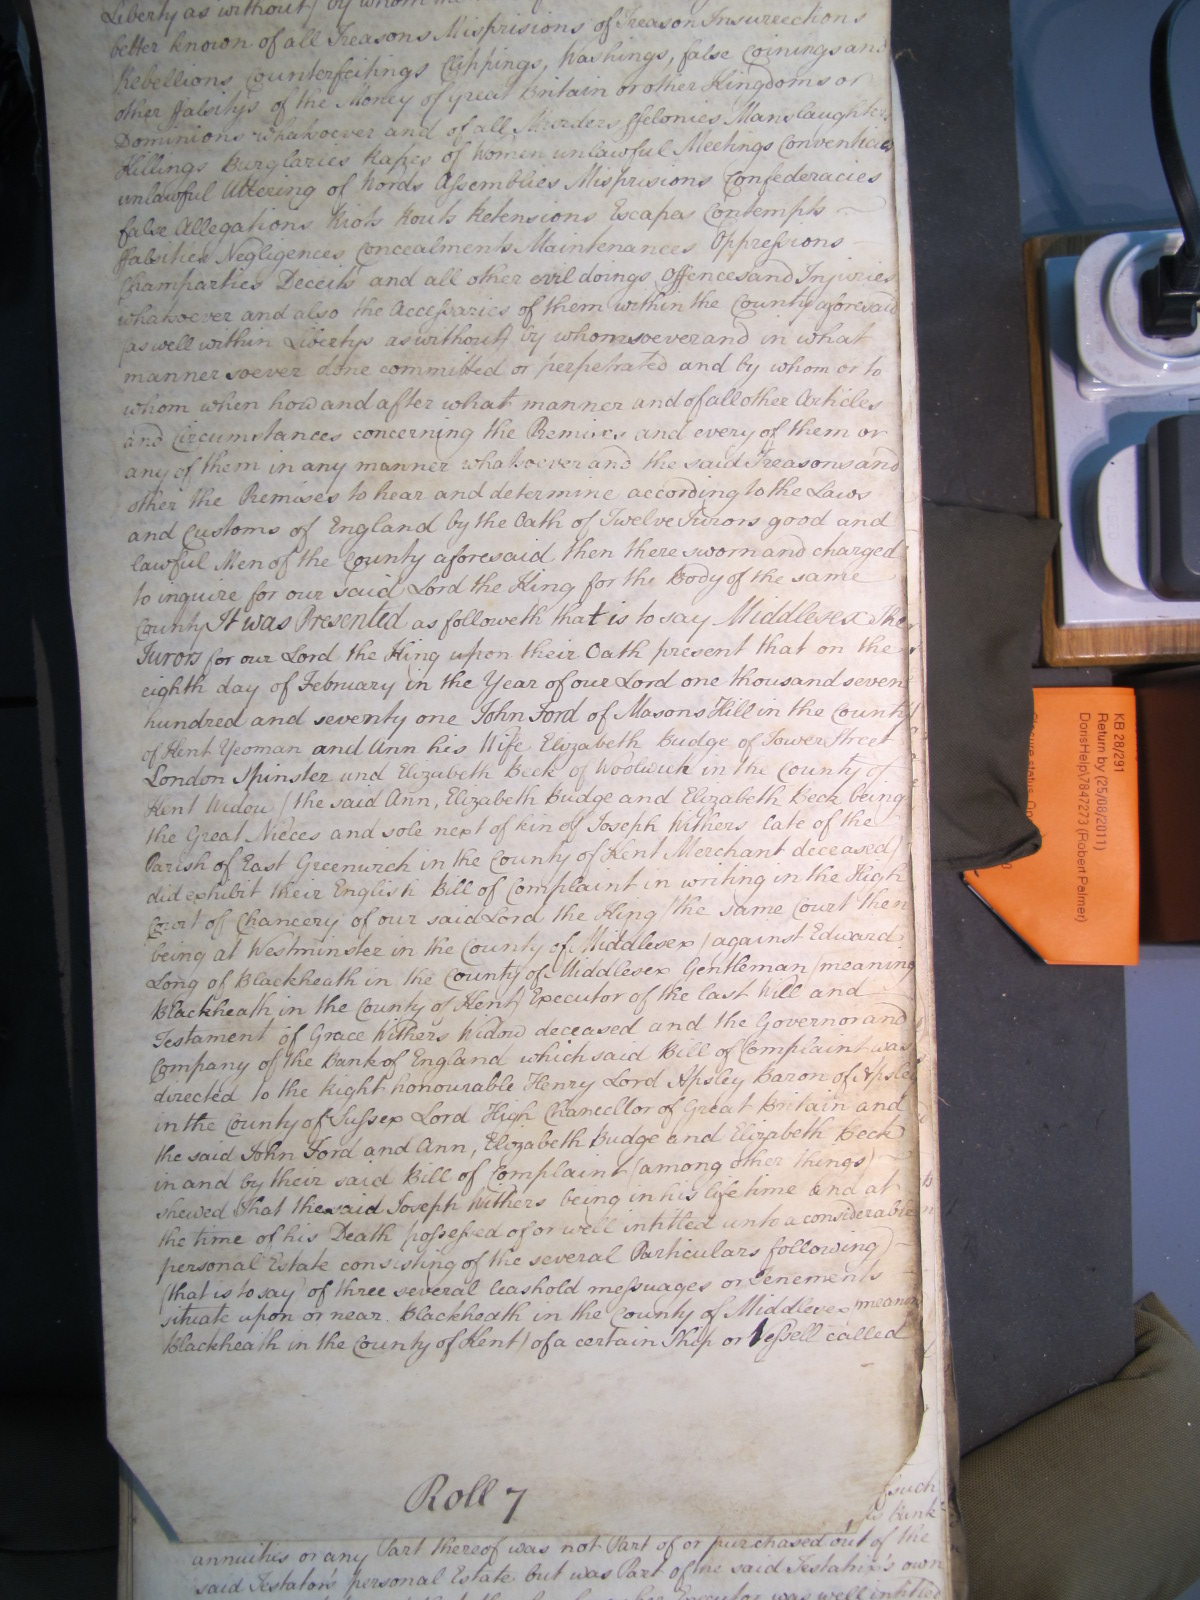 Liberty as without) by whom
better known of all Treasons Misprisions of Treason Insurrections
Rebellions Counterfeitings Clippings, Washings, false Coinings and
other ffalsitys of the Money of Great Britain or other Kingdoms or
Dominions whatsoever and of all Murders ffelonies Manslaughters
Killings Burglaries Rapes of Women unlawful Meetings Conventicles
unlawful Uttering of Words Assemblies Misprisions Confederacies
false Allegations Riots Routs Retensions Escapes Contempts
ffalsities Negligences Concealments Maintenances Oppressions
Champarties Deceits and all other evil doings Offences and Injuries
whatsoever and also the Accessaries of them within the County aforesaid
(as well within Libertys as without) by whomsoever and in what
manner soever done committed or perpetrated and by whom or to
whom when how and after what manner and of all other Articles
and Circumstances concerning the Premises and every of them or
any of them in any manner whatsoever and the said Treasons and
other the Premises to hear and determine according to the Laws
and Customs of England by the Oath of Twelve Jurors good and
lawful Men of the County aforesaid then there sworn and charged
to inquire for our said Lord the King for the Body of the same
County It was Presented as followeth that is to say Middlesex The
Jurors for our Lord the King upon their Oath present that on the
eighth day of February in the Year of our Lord one thousand seven
hundred and seventy one John Ford of Masons Hill in the County
of Kent Yeoman and Ann his Wife Elizabeth Budge of Tower Street
London Spinster and Elizabeth Beck of Woolwich in the County of
Kent Widow (the said Ann, Elizabeth Budge and Elizabeth Beck being
the Great Nieces and sole next of kin of Joseph Withers late of the
Parish of East Greenwich in the County of Kent Merchant deceased)
did exhibit their English Bill of Complaint in writing in the High
Court of Chancery of our said Lord the King (the same Court then
being at Westminster in the County of Middlesex) against Edward
Long of Blackheath in the County of Middlesex Gentleman (meaning
Blackheath in the County of Kent) Executor of the last Will and
Testament of Grace Withers Widow deceased and the Governor and
Company of the Bank of England which said Bill of Complaint was
directed to the Right honourable Henry Lord Apsley Baron of Apsley
in the County of Sussex Lord High Chancellor of Great Britain and
the said John Ford and Ann, Elizabeth Budge and Elizabeth Beck
in and by their said Bill of Complaint (among other things)
shewed That the said Joseph Withers being in his life time and at
the time of his Death possessed of or well intitled unto a considerable
personal Estate consisting of the several Particulars following
(that is to say) of three several leashold messuages or Tenements
situate upon or near Blackheath in the County of Middlesex (meaning
Blackheath in the County of Kent) of a certain Ship or Vessell called
Roll 7
such
Bank
annuities or any Part thereof was not Part of or purchased out of the
said Testator's personal Estate but was Part of the said Testatrix's own
Executor was well intitled
KB 28/291
Return by (25/08/2011)
DorisHelp\7847273 (Robert Palmer)